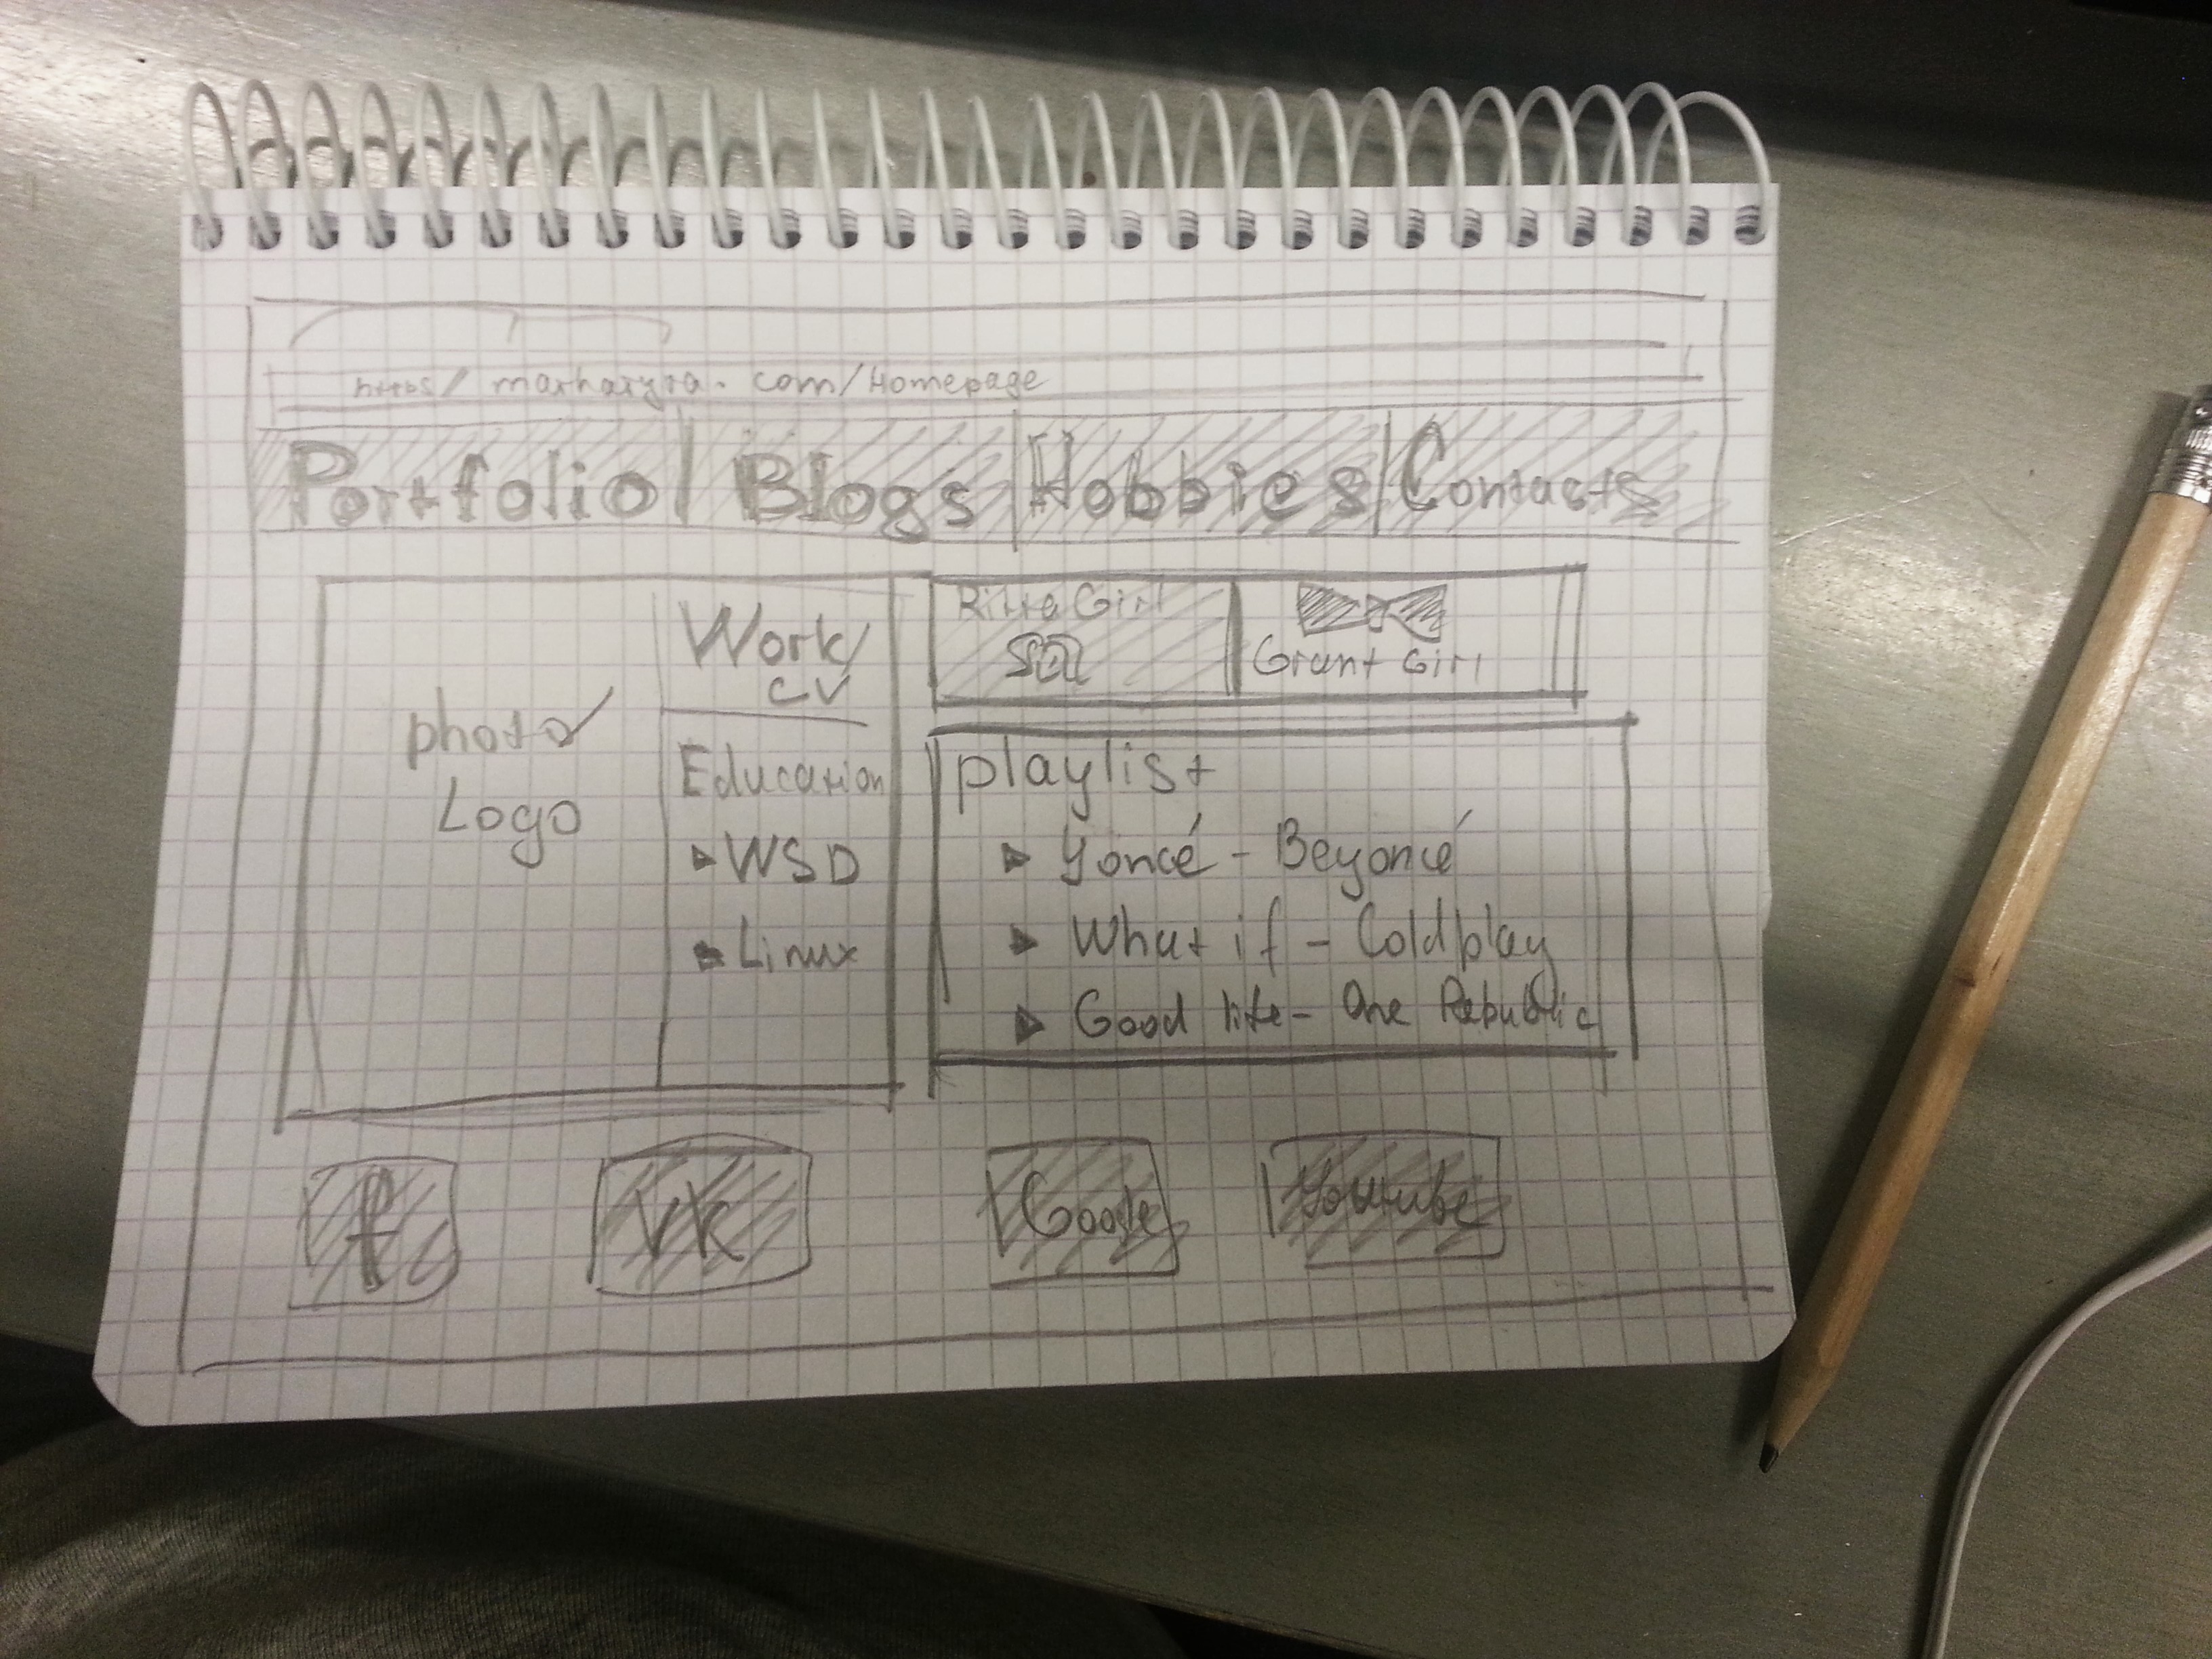 https/ marharyta. com/Homepage
Portfolio Blogs Hobbies Contacts
photo/
Logo
Work/
CV
Education
WSD
Linux
Girl
Grant Girl
playlist
Yoncé - Beyoncé
What if - Coldplay
Good life - One Republic
f
VK
Google
Youtube